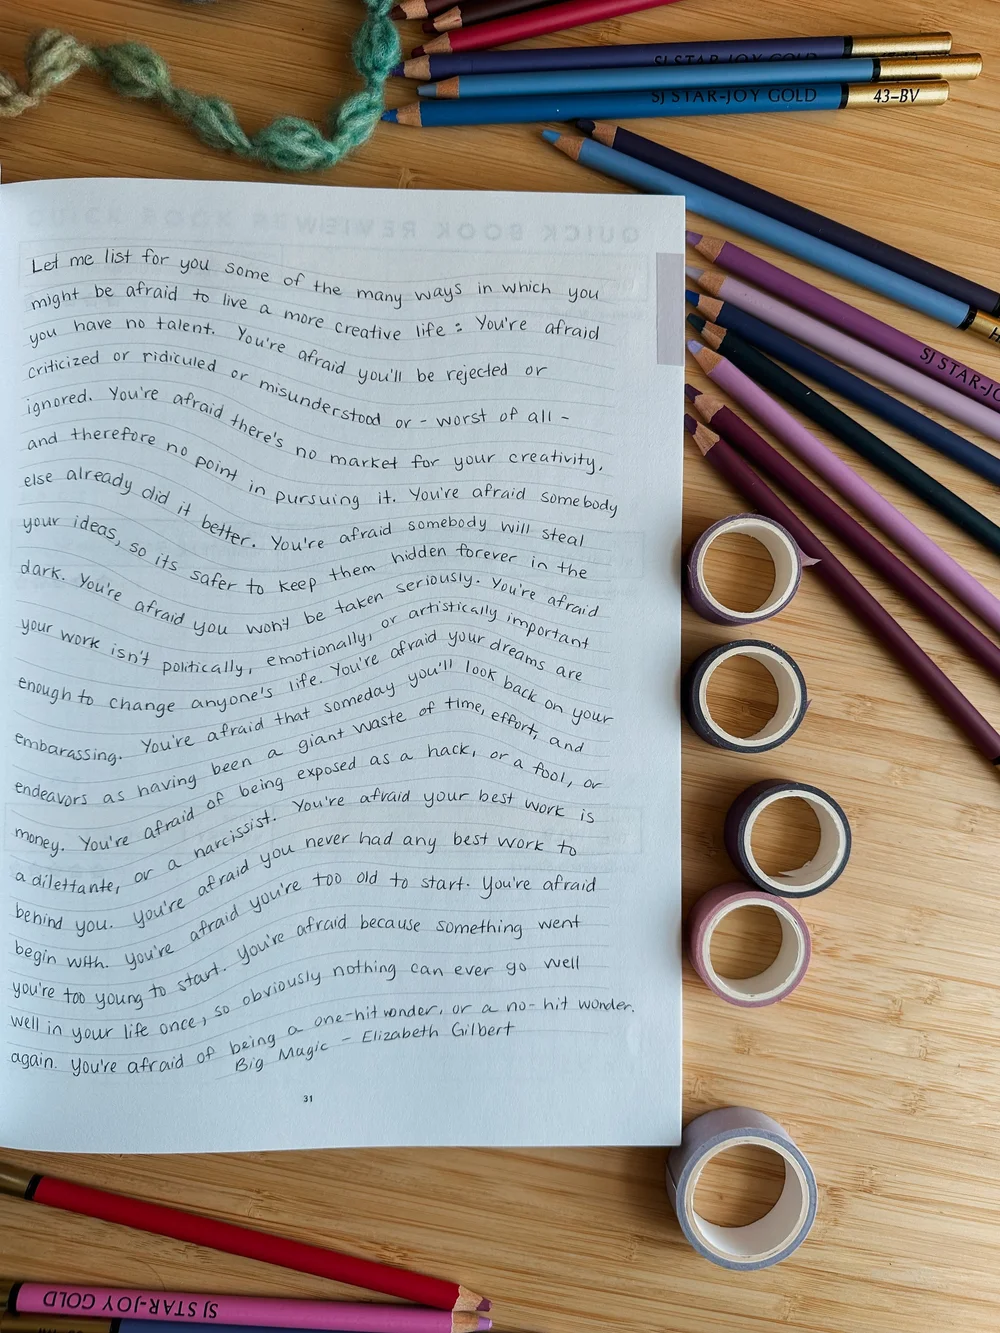 SJ STAR-JOY GOLD
SJ STAR-JOY GOLD 43-BV
SJ STAR-JO
QUICK BOOK REVIEW
Let me list for you some of the many ways in which you
might be afraid to live a more creative life : You're afraid
you have no talent. You're afraid you'll be rejected or
criticized or ridiculed or misunderstood or - worst of all -
ignored. You're afraid there's no market for your creativity,
and therefore no point in pursuing it. You're afraid somebody
else already did it better. You're afraid somebody will steal
your ideas, so its safer to keep them hidden forever in the
dark. You're afraid you won't be taken seriously. You're afraid
your work isn't politically, emotionally, or artistically important
enough to change anyone's life. You're afraid your dreams are
embarassing. You're afraid that someday you'll look back on your
endeavors as having been a giant waste of time, effort, and
money. You're afraid of being exposed as a hack, or a fool, or
a dilettante, or a narcissist. You're afraid your best work is
behind you. You're afraid you never had any best work to
begin with. You're afraid you're too old to start. You're afraid
you're too young to start. You're afraid because something went
well in your life once, so obviously nothing can ever go well
again. You're afraid of being a one-hit wonder, or a no-hit wonder.
Big Magic - Elizabeth Gilbert
31
SJ STAR-JOY GOLD